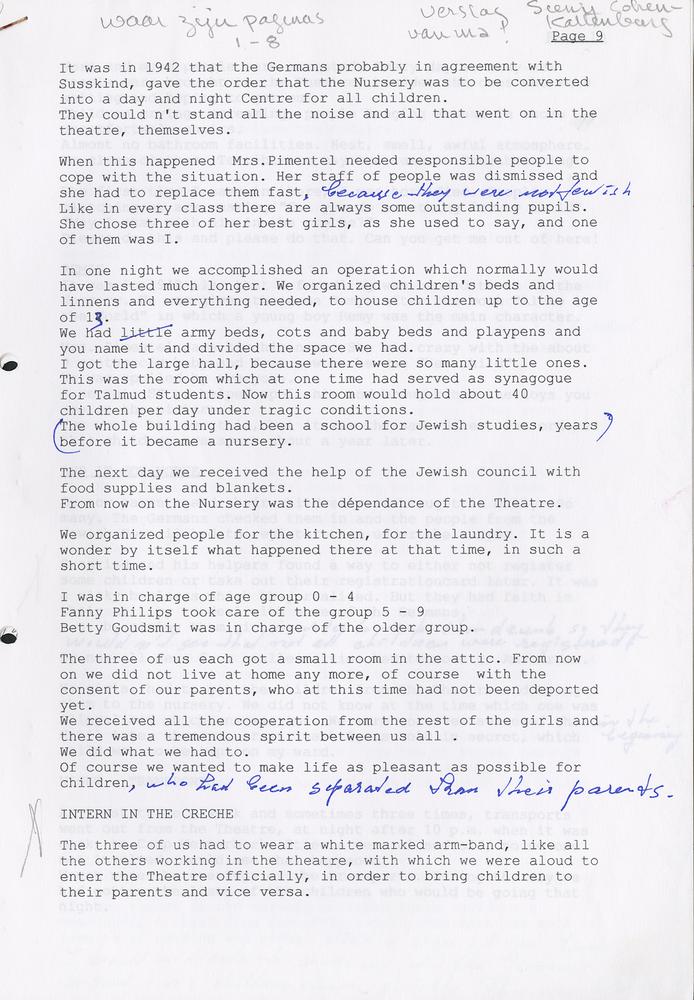 waar zijn paginas
1 - 8
verslag
van ma!
Sienij Cohen-
Kattenburg
Page 9
It was in 1942 that the Germans probably in agreement with
Susskind, gave the order that the Nursery was to be converted
into a day and night Centre for all children.
They could n't stand all the noise and all that went on in the
theatre, themselves.
When this happened Mrs.Pimentel needed responsible people to
cope with the situation. Her staff of people was dismissed and
she had to replace them fast, because they were not Jewish
Like in every class there are always some outstanding pupils.
She chose three of her best girls, as she used to say, and one
of them was I.
In one night we accomplished an operation which normally would
have lasted much longer. We organized children's beds and
linnens and everything needed, to house children up to the age
of 13.
We had little army beds, cots and baby beds and playpens and
you name it and divided the space we had.
I got the large hall, because there were so many little ones.
This was the room which at one time had served as synagogue
for Talmud students. Now this room would hold about 40
children per day under tragic conditions.
(The whole building had been a school for Jewish studies, years)
before it became a nursery.
The next day we received the help of the Jewish council with
food supplies and blankets.
From now on the Nursery was the dépendance of the Theatre.
We organized people for the kitchen, for the laundry. It is a
wonder by itself what happened there at that time, in such a
short time.
I was in charge of age group 0 - 4
Fanny Philips took care of the group 5 - 9
Betty Goudsmit was in charge of the older group.
The three of us each got a small room in the attic. From now
on we did not live at home any more, of course with the
consent of our parents, who at this time had not been deported
yet.
We received all the cooperation from the rest of the girls and
there was a tremendous spirit between us all .
We did what we had to.
Of course we wanted to make life as pleasant as possible for
children, who had been separated from their parents.
INTERN IN THE CRECHE
The three of us had to wear a white marked arm-band, like all
the others working in the theatre, with which we were aloud to
enter the Theatre officially, in order to bring children to
their parents and vice versa.